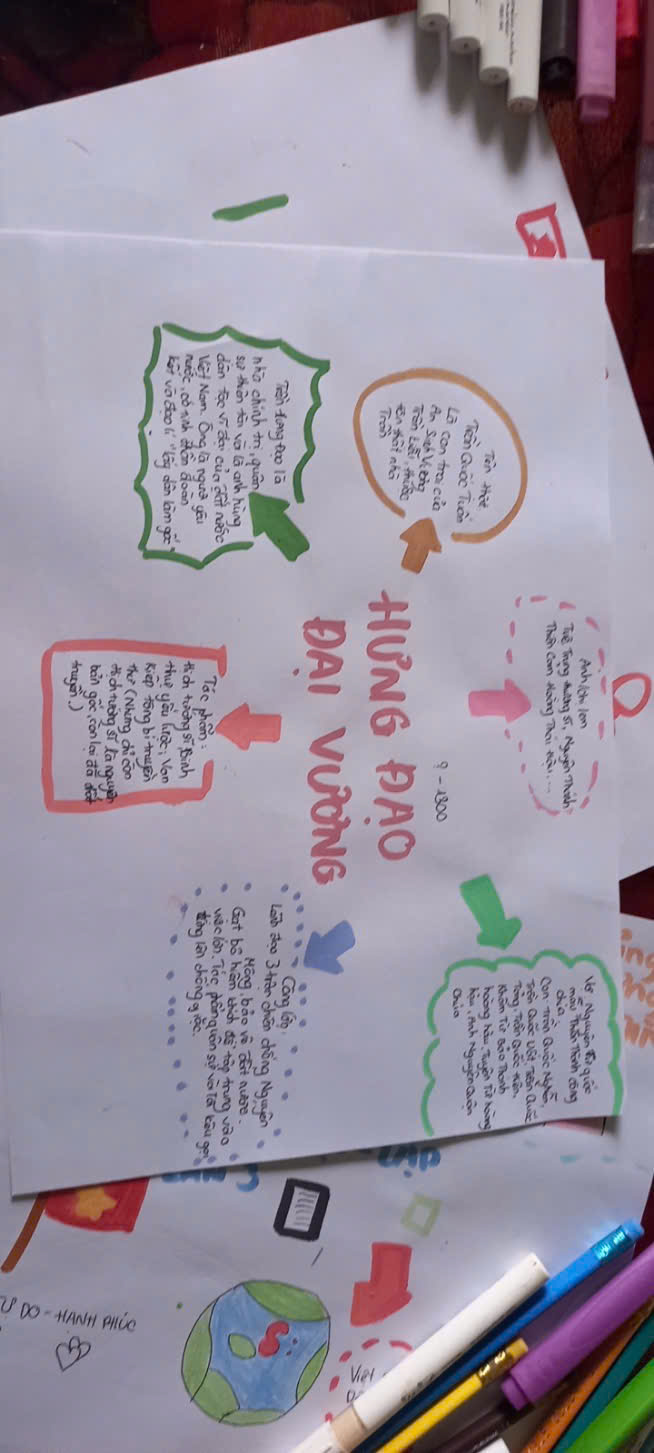 HƯNG ĐẠO
ĐẠI VƯƠNG
? - 1300
Tên thật
Trần Quốc Tuấn
Là con trai của
An Sinh Vương
Trần Liễu, thuộc
tôn thất nhà
Trần
Anh/chị/em
Tuệ Trung thượng sĩ, Nguyên Thánh
Thiên Cảm Hoàng Thái Hậu,...
Vợ: Nguyên Từ quốc
mẫu Thiên Thành công
chúa
Con: Trần Quốc Nghiễn,
Trần Quốc Uất, Trần Quốc
Tảng, Trần Quốc Hiện,
Khâm Từ Bảo Thánh
hoàng hậu, Tuyên Từ hoàng
hậu, Anh Nguyên Quận
Chúa
Trần Hưng Đạo là
nhà chính trị, quân
sự thiên tài và là anh hùng
dân tộc vĩ đại của đất nước
Việt Nam. Ông là người yêu
nước, có tinh thần đoàn
kết và đạo lí "lấy dân làm gốc"
Tác phẩm:
Hịch tướng sĩ, Binh
thư yếu lược, Vạn
Kiếp tông bí truyền
thư (Nhưng chỉ còn
Hịch tướng sĩ là nguyên
bản gốc, còn lại đã thất
truyền.)
Công lao,
Lãnh đạo 3 trận chiến chống Nguyên
Mông, bảo vệ đất nước.
Gạt bỏ hiềm khích để tập trung vào
việc lớn. Tác phẩm quân sự và lời kêu gọi
đứng lên chống giặc.
DO - HẠNH PHÚC
Việt